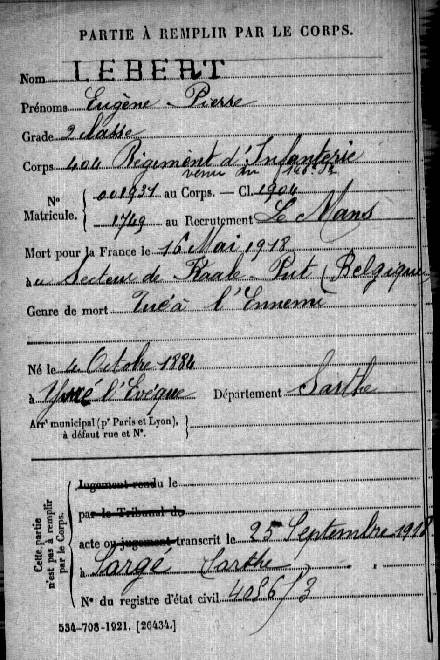 PARTIE À REMPLIR PAR LE CORPS.
Nom LEBERT
Prénoms Eugène Pierre
Grade 2 classe
Corps 404 Régiment d'Infanterie
venu du 146e
Nº
Matricule.
001931 au Corps. — Cl. 1904
1749 au Recrutement Le Mans
Mort pour la France le 16 Mai 1918
au Secteur de Kaale Put (Belgique)
Genre de mort Tué à l'Ennemi
Né le 4 Octobre 1884
à Yvré l'Evêque Département Sarthe
Arrt municipal (pr Paris et Lyon),
à défaut rue et Nº.
Cette partie
n'est pas à remplir
par le Corps.
Jugement rendu le
par le Tribunal de
acte ou jugement transcrit le 25 Septembre 1918
à Sargé Sarthe
Nº du registre d'état civil 4086/3
534-708-1921. [26434.]